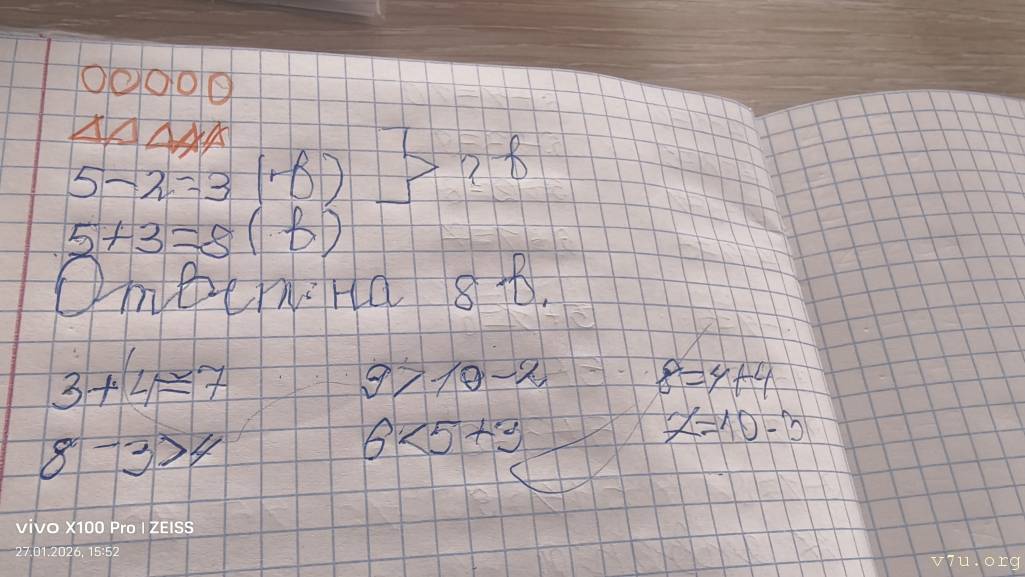 5-2=3 (в) ? в
5+3=8 (в)
Ответ: на 8 в.
3+4=7 9>10-2 8=4+4
8-3>4 6<5+3 7=10-3
vivo X100 Pro | ZEISS
27.01.2026, 15:52
v7u.org